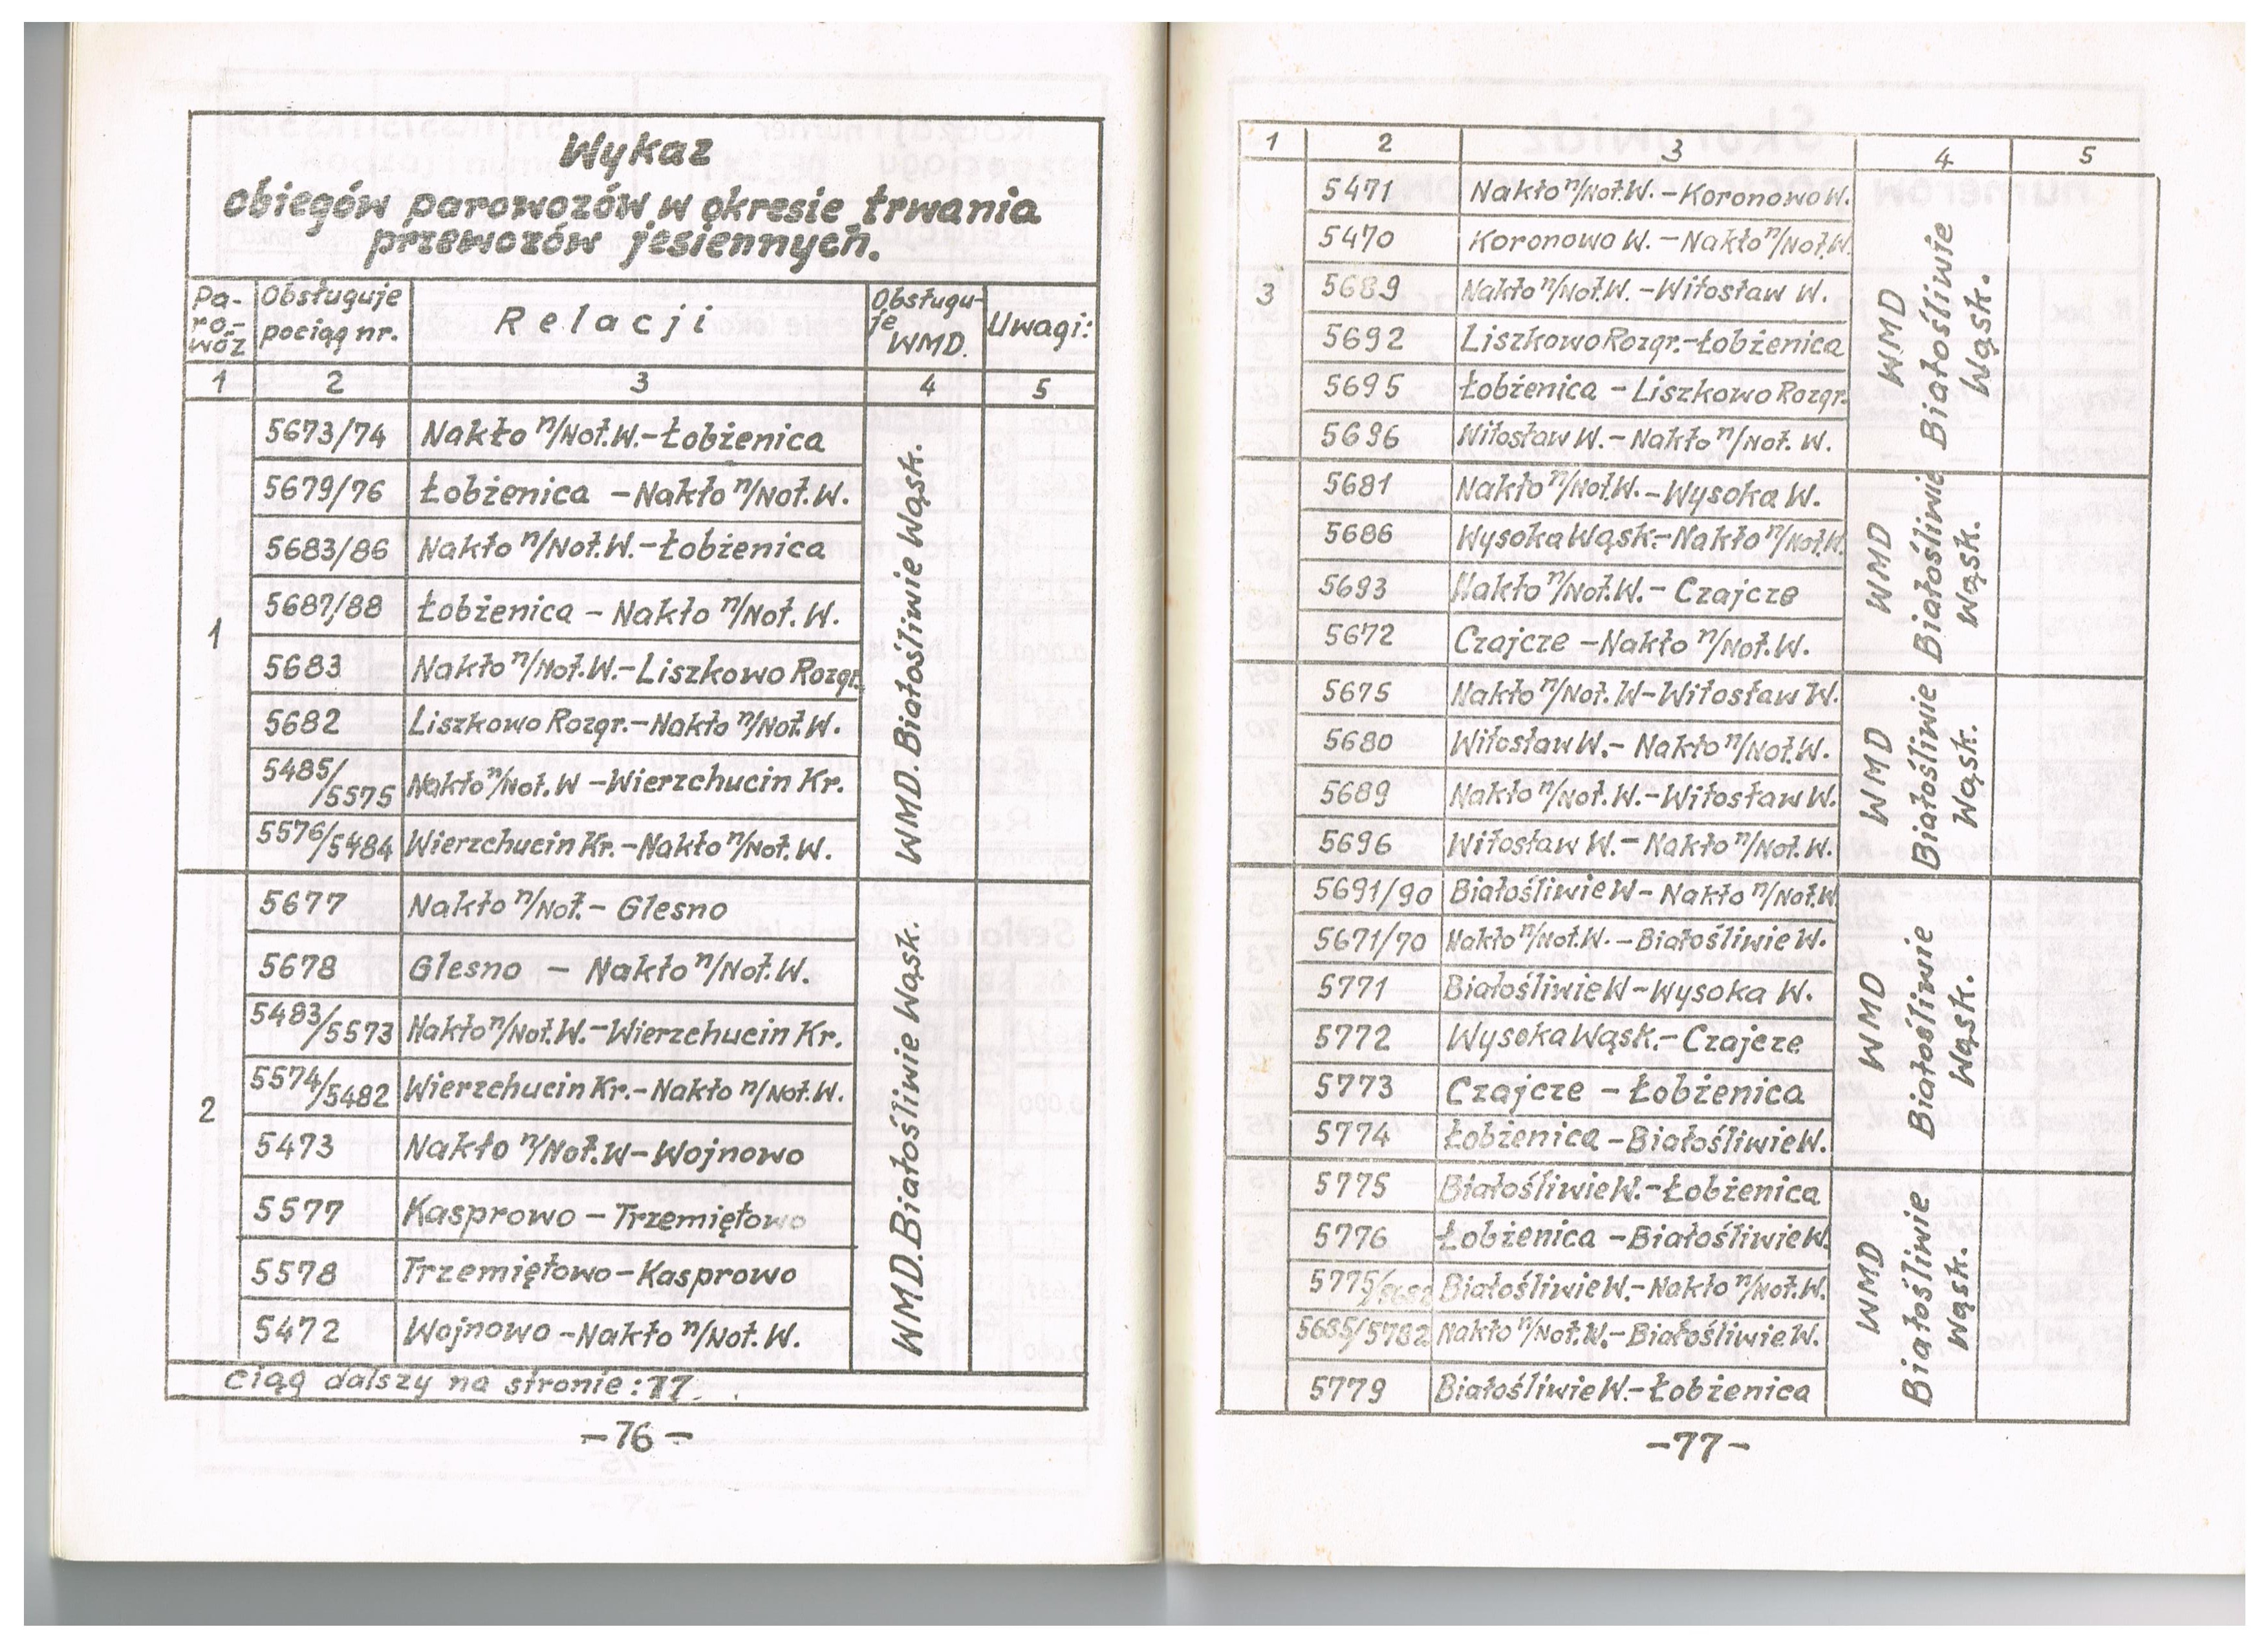 Wykaz
obiegów parowozów w okresie trwania
przewozów jesiennych.
Pa-
ro-
wóz
Obsługuje
pociąg nr.
Relacji
Obsługu-
je
WMD.
Uwagi:
1 2 3 4 5
1
5673/74 Nakło n/Not.W.-Łobżenica
5679/76 Łobżenica - Nakło n/Not.W.
5683/86 Nakło n/Not.W.-Łobżenica
5687/88 Łobżenica - Nakło n/Not.W.
5683 Nakło n/Not.W.-Liszkowo Rozgr.
5682 Liszkowo Rozgr.-Nakło n/Not.W.
5485/5575 Nakło n/Not.W-Wierzchucin Kr.
5576/5484 Wierzchucin Kr.-Nakło n/Not.W.
WMD. Białośliwie Wąsk.
2
5677 Nakło n/Not.- Glesno
5678 Glesno - Nakło n/Not.W.
5483/5573 Nakło n/Not.W.-Wierzchucin Kr.
5574/5482 Wierzchucin Kr.-Nakło n/Not.W.
5473 Nakło n/Not.W-Wojnowo
5577 Kasprowo - Trzemiętowo
5578 Trzemiętowo-Kasprowo
5472 Wojnowo -Nakło n/Not.W.
WMD. Białośliwie Wąsk.
ciąg dalszy na stronie: 77
-76-
1 2 3 4 5
3
5471 Nakło n/Not.W.-Koronowo W.
5470 Koronowo W.-Nakło n/Not.W.
5689 Nakło n/Not.W.-Witosław W.
5692 Liszkowo Rozgr.-Łobżenica
5695 Łobżenica - Liszkowo Rozgr.
5696 Witosław W.- Nakło n/Not. W.
WMD
Białośliwie
Wąsk.
5681 Nakło n/Not.W.-Wysoka W.
5686 Wysoka Wąsk.-Nakło n/Not.W.
5693 Nakło n/Not.W.- Czajcze
5672 Czajcze -Nakło n/Not.W.
WMD
Białośliwie
Wąsk.
5675 Nakło n/Not.W-Witosław W.
5680 Witosław W.- Nakło n/Not.W.
5689 Nakło n/Not.W.-Witosław W.
5696 Witosław W.- Nakło n/Not.W.
WMD
Białośliwie
Wąsk.
5691/90 Białośliwie W- Nakło n/Not.W
5671/70 Nakło n/Not.W.-Białośliwie W.
5771 Białośliwie W-Wysoka W.
5772 Wysoka Wąsk.-Czajcze
5773 Czajcze - Łobżenica
5774 Łobżenica -Białośliwie W.
WMD
Białośliwie
Wąsk.
5775 Białośliwie W.-Łobżenica
5776 Łobżenica -Białośliwie W.
Białośliwie W.-Nakło n/Not.W.
5685/5782 Nakło n/Not.W.-Białośliwie W.
5779 Białośliwie W.-Łobżenica
WMD
Białośliwie
Wąsk.
-77-